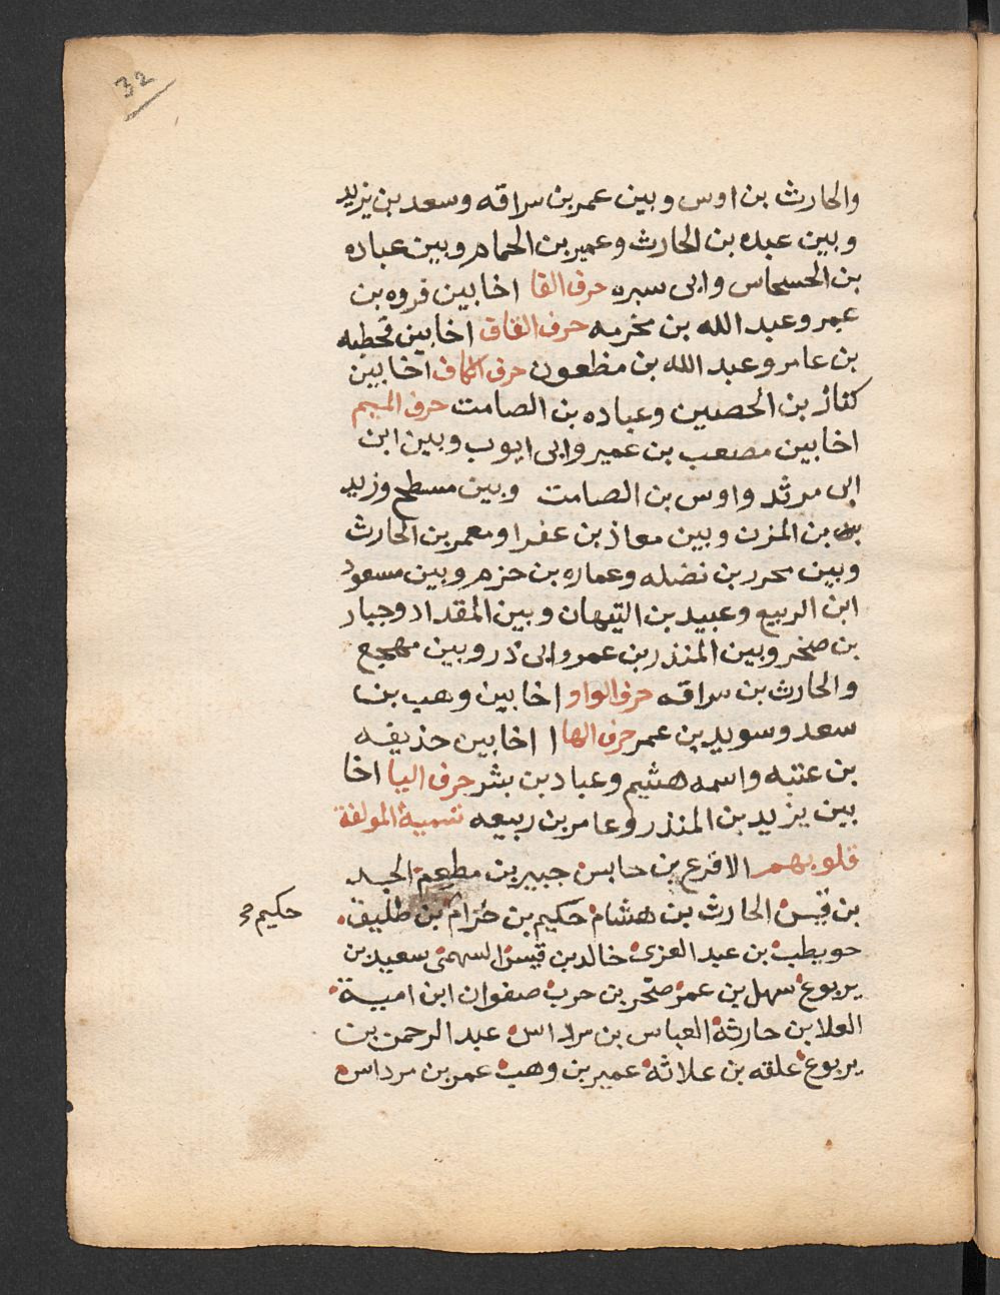 32
والحارث بن اوس وبين عمر بن سراقه وسعد بن يزيد
وبين عبده بن الحارث وعمير بن الحمام وبين عباده
بن الحسحاس وابى سبره حرف الفا اخا بين فروه بن
عمر وعبد الله بن مخرمه حرف القاف اخا بين قحطبه
بن عامر وعبد الله بن مظعون حرف الكاف اخا بين
كناز بن الحصين وعباده بن الصامت حرف الميم
اخا بين مصعب بن عمير وابى ايوب وبين ابن
ابى مرثد واوس بن الصامت وبين مسطح وزيد
بن المزن وبين معاذ بن عفرا ومعمر بن الحارث
وبين محرر بن نضله وعماره بن حزم وبين مسعود
ابن الربيع وعبيد بن التيهان وبين المقداد وجبار
بن صخر وبين المنذر بن عمر وابى ذر وبين مهجع
والحارث بن سراقه حرف الواو اخا بين وهب بن
سعد وسويد بن عمر حرف الها ا اخا بين حذيفه
بن عتبه واسمه هشيم وعباد بن بشر حرف اليا اخا
بين يزيد بن المنذر وعامر بن ربيعه تسمية المولفة
قلوبهم الاقرع بن حابس جبير بن مطعم الجد
بن قيس الحارث بن هشام حكيم بن حزام بن طليق
حكيم
حويطب بن عبد العزى خالد بن قيس السهمى سعيد بن
يربوع سهل بن عمر صخر بن حرب صفوان ابن امية
العلا بن حارثة العباس بن مرداس عبد الرحمن بن
يربوع علقه بن علاثة عمير بن وهب عمر بن مرداس